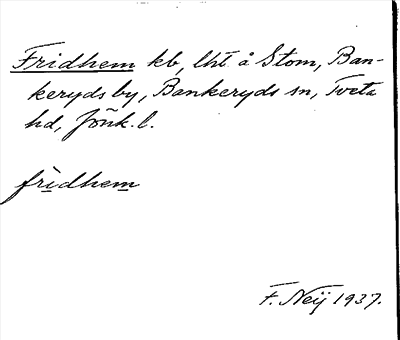 Fridhem kb, lht å Stom, Ban-
keryds by, Bankeryds sn, Tveta
hd, Jönk. l.
frìdhem
F. Neij 1937.